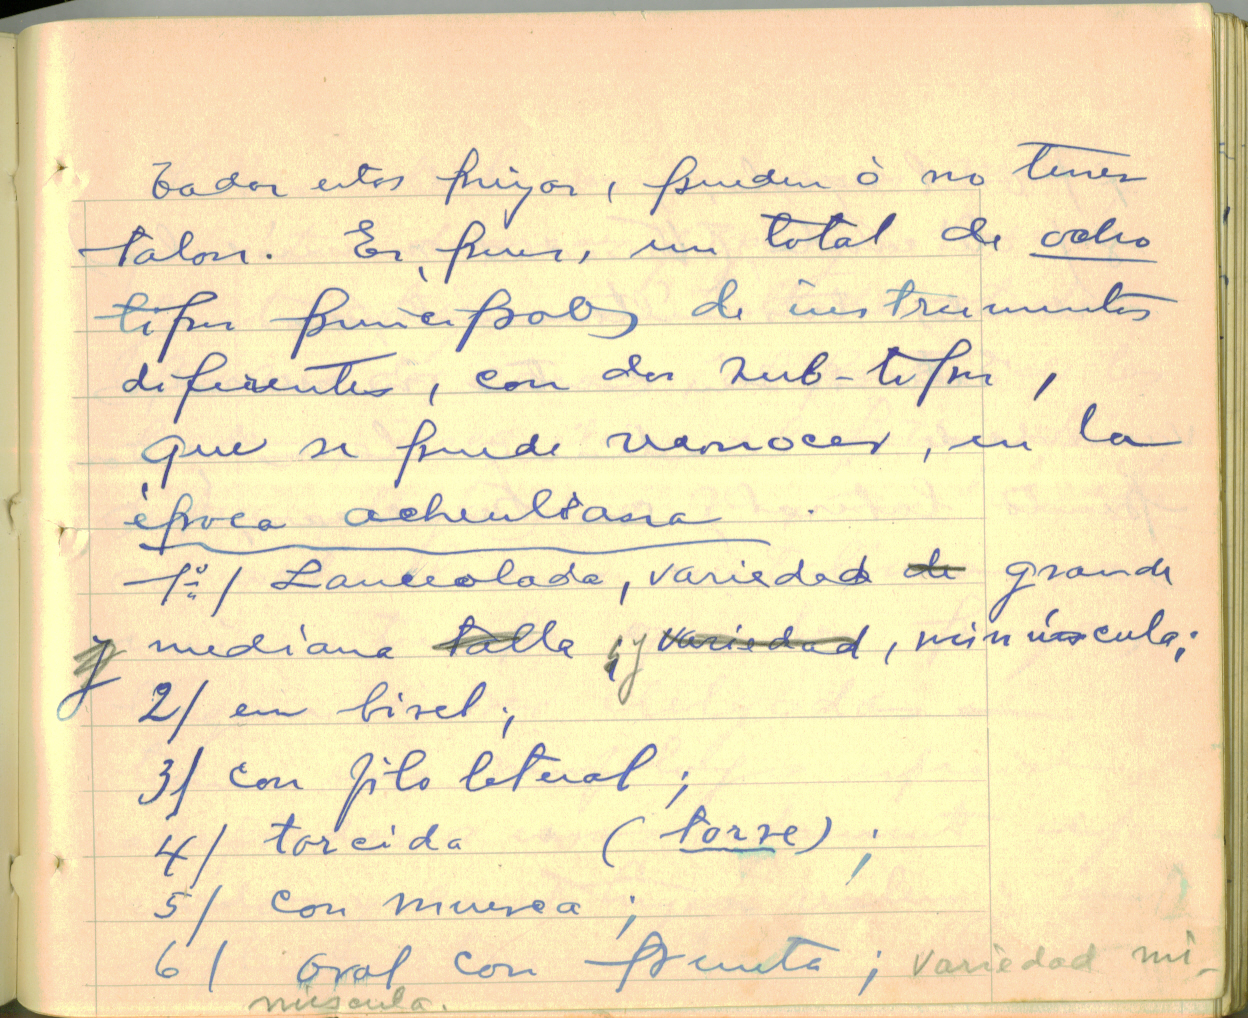 Todas estas piezas, pueden ò no tener
talon. Es, pues, un total de ocho
tipos principales de instrumentos
diferentes, con dos sub-tipos,
que se puede reconocer, en la
época acheuliana.
1º/ Lanceolada, variedad de grande
y mediana talla ; y variedad, minúscula;
2/ en bisel;
3/ con filo lateral;
4/ torcida (torse);
5/ con muesca;
6/ oval con punta; variedad mi-
núscula.